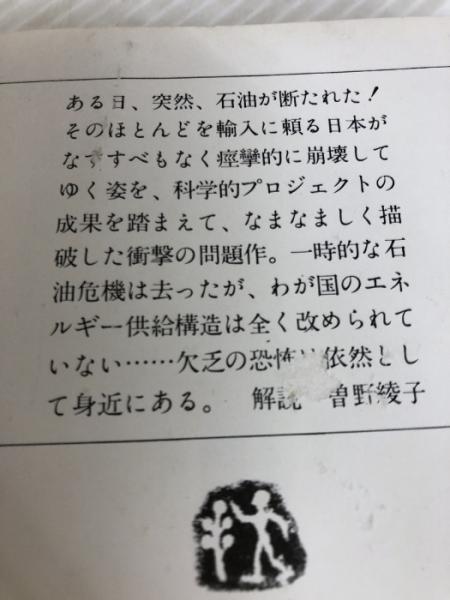 ある日、突然、石油が断たれた!
そのほとんどを輸入に頼る日本が
なすすべもなく痙攣的に崩壊して
ゆく姿を、科学的プロジェクトの
成果を踏まえて、なまなましく描
破した衝撃の問題作。一時的な石
油危機は去ったが、わが国のエネ
ルギー供給構造は全く改められて
いない……欠乏の恐怖は依然とし
て身近にある。 解説 曽野綾子